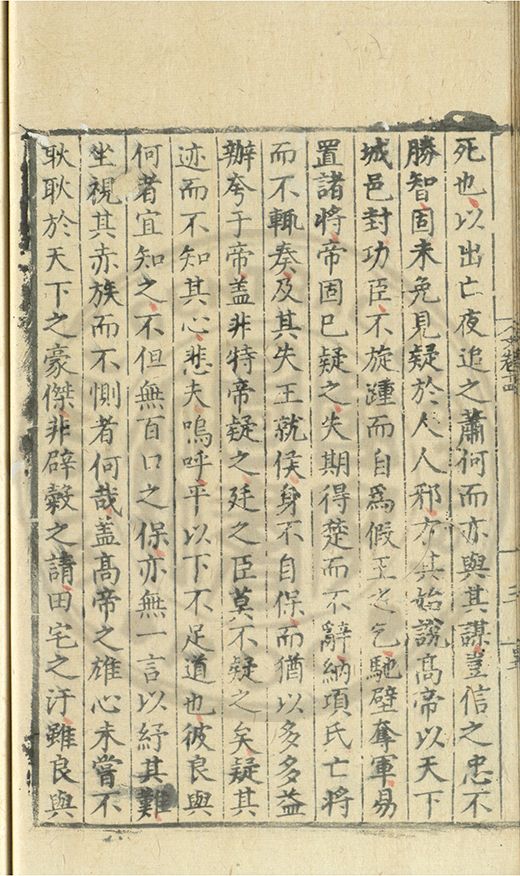 死也以出亡夜追之蕭何而亦與其謀豈信之忠不
勝智固未免見疑於人人邪方其始說髙帝以天下
城邑封功臣不旋踵而自爲假王之乞馳壁奪軍易
置諸將帝固已疑之失期得楚而不辭納項氏亡將
而不輒奏及其失王就侯身不自保而猶以多多益
辦夸于帝盖非特帝疑之廷之臣莫不疑之矣疑其
迹而不知其心悲夫嗚呼平以下不足道也彼良與
何者宜知之不但無百口之保亦無一言以紓其難
坐視其赤族而不惻者何哉盖髙帝之雄心未嘗不
耿耿於天下之豪傑非辟穀之請田宅之汙雖良與
文卷十四